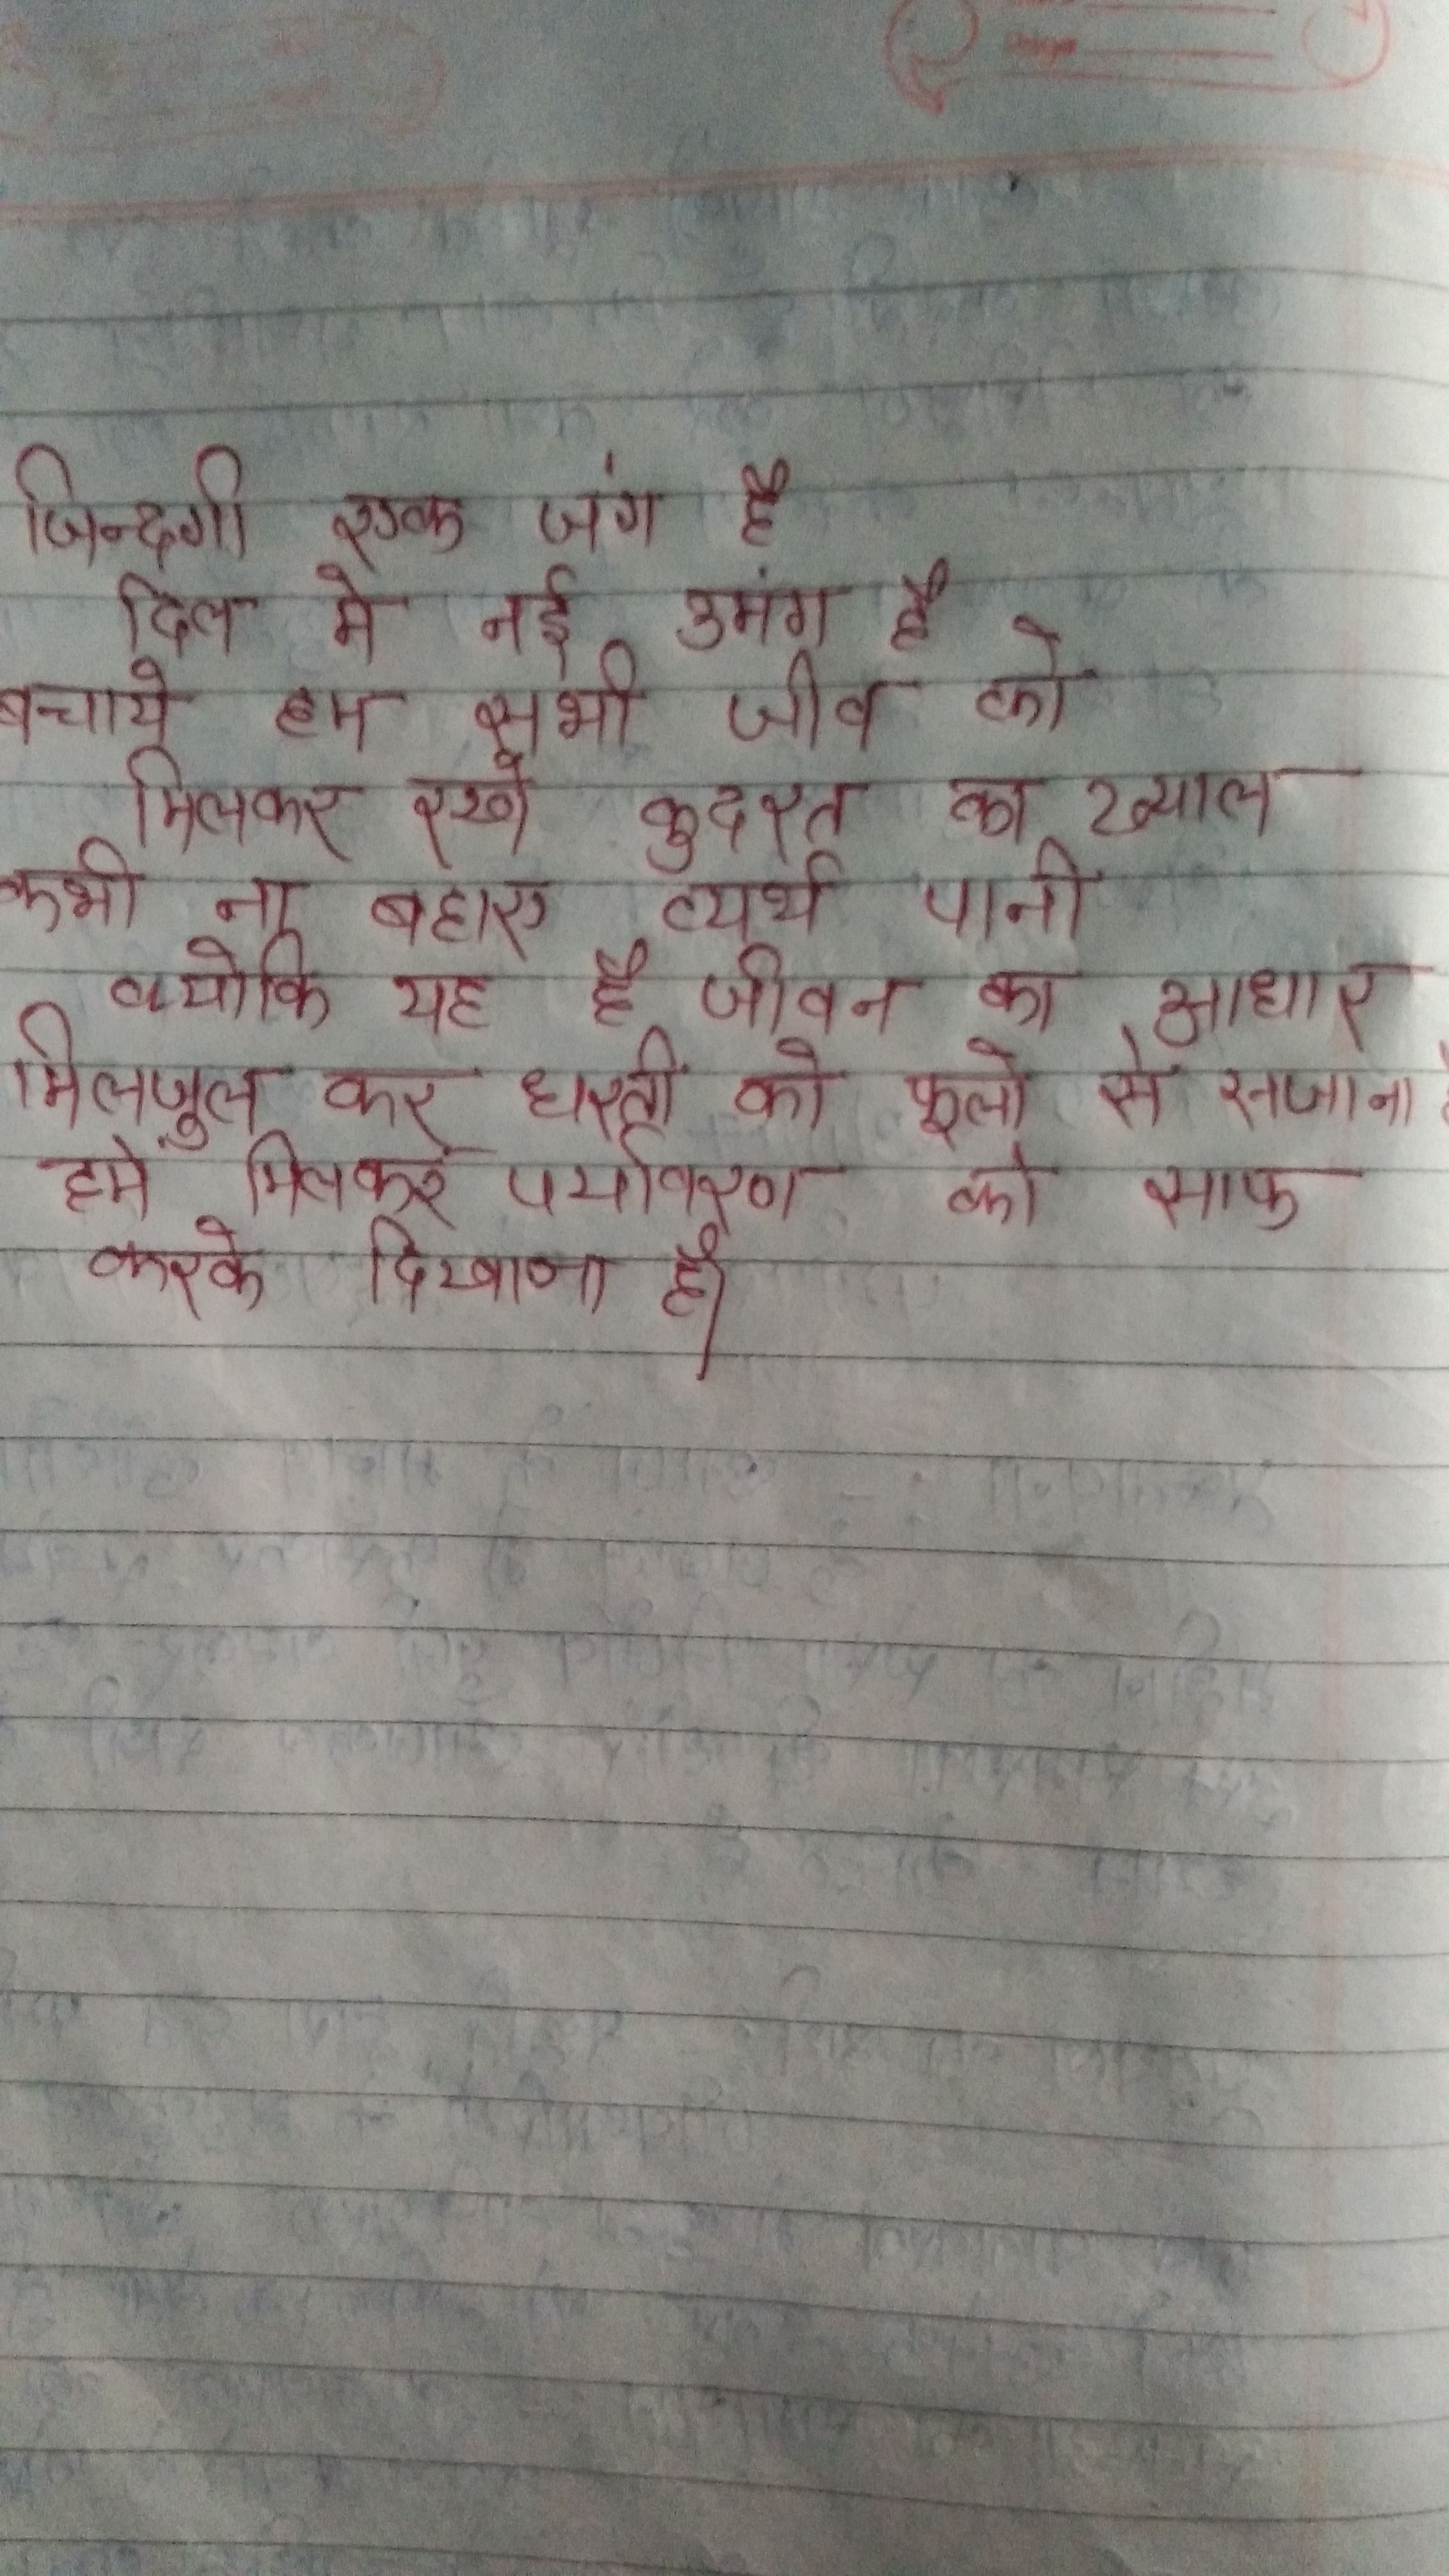 जिन्दगी एक जंग है
दिल मे नई उमंग है
बचाये हम सभी जीव को
मिलकर रखे कुदरत का ख्याल
कभी ना बहाए व्यर्थ पानी
क्योकि यह है जीवन का आधार
मिलजुल कर धरती को फूलो से सजाना
हमे मिलकर पर्यावरण को साफ
करके दिखाना है।